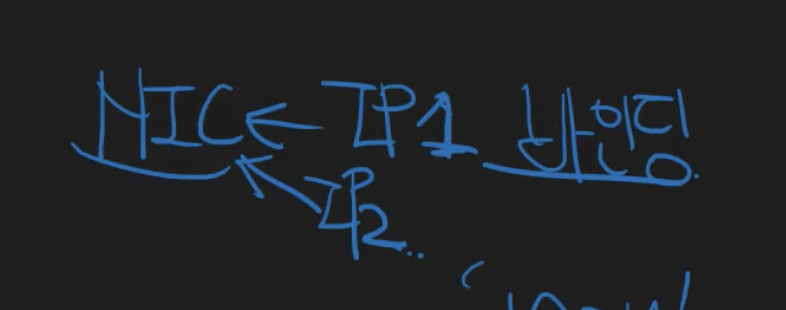 NIC ← IP1 바인딩.
IP2..